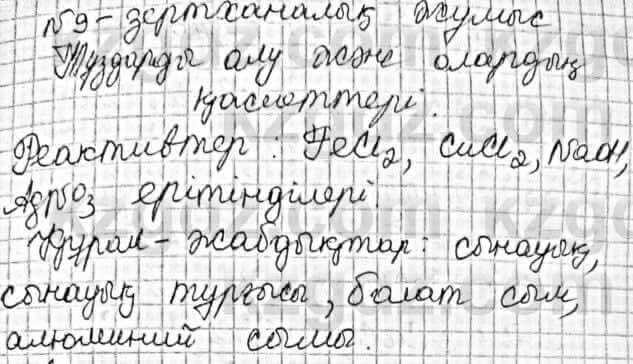 №9 - зертханалық жұмыс
Тұздарды алу және олардың
қасиеттері.
Реактивтер : FeCl₂, CuCl₂, NaOH,
AgNO₃ ерітінділері.
Құрал - жабдықтар: сынауық,
сынауық тұрғысы, балат сым,
алюминий сымы.